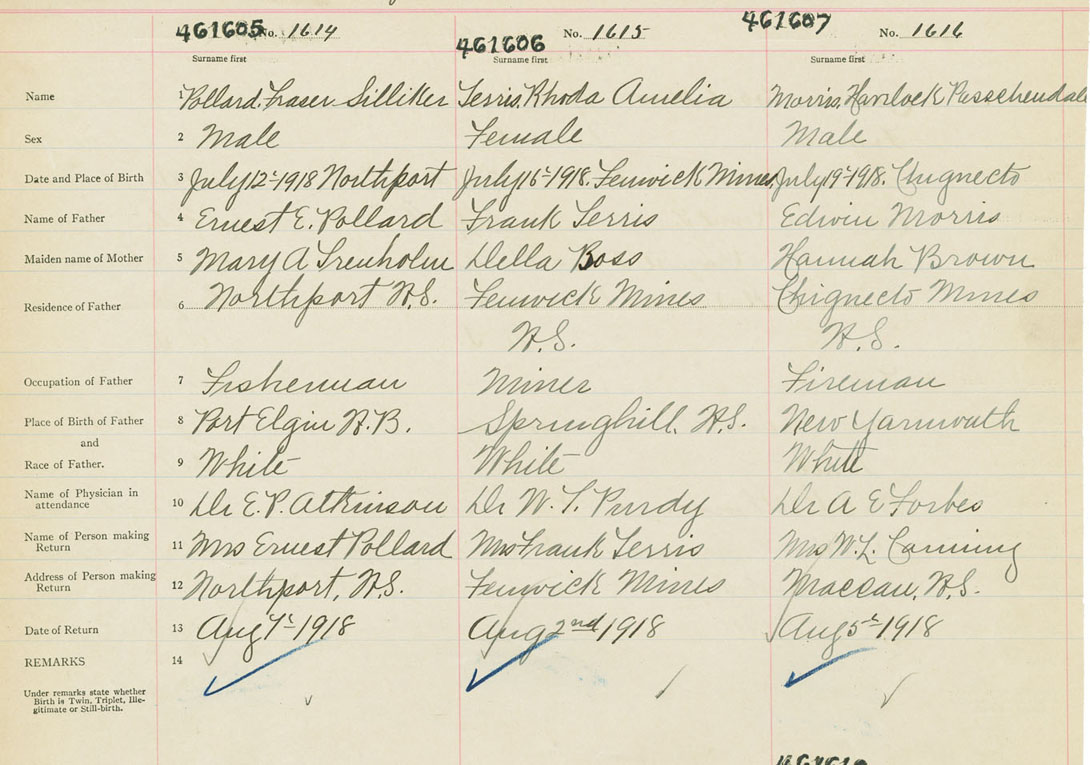 461605 No. 1614 461606 No. 1615 461607 No. 1616
Surname first Surname first Surname first
Name 1 Pollard, Fraser Silliker Ferris, Rhoda Amelia Morris, Havelock Passchendale
Sex 2 Male Female Male
Date and Place of Birth 3 July 12 1918 Northport July 16 1918. Fenwick Mines July 19 1918. Chignecto
Name of Father 4 Ernest E. Pollard Frank Ferris Edwin Morris
Maiden name of Mother 5 Mary A Trenholm Della Boss Hannah Brown
Residence of Father 6 Northport N.S. Fenwick Mines Chignecto Mines
N.S. N.S.
Occupation of Father 7 Fisherman Miner Fireman
Place of Birth of Father 8 Port Elgin N.B. Springhill, N.S. New Yarmouth
and
Race of Father. 9 White White White
Name of Physician in
attendance 10 Dr E. P. Atkinson Dr W. T. Purdy Dr A E Forbes
Name of Person making
Return 11 Mrs Ernest Pollard Mrs Frank Ferris Mrs W. L. Canning
Address of Person making
Return 12 Northport, N.S. Fenwick Mines Maccan, N.S.
Date of Return 13 Aug 1918 Aug 2nd 1918 Aug 5 1918
REMARKS 14
Under remarks state whether
Birth is Twin, Triplet, Ille-
gitimate or Still-birth.